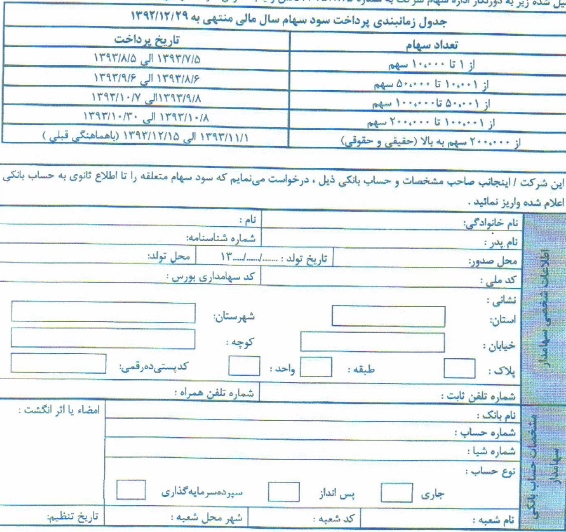 جدول زمانبندی پرداخت سود سهام سال مالی منتهی به ۱۳۹۲/۱۲/۲۹
تعداد سهام	تاریخ پرداخت
از ۱ تا ۱۰،۰۰۰ سهم	۱۳۹۳/۷/۵ الی ۱۳۹۳/۸/۵
از ۱۰،۰۰۱ تا ۵۰،۰۰۰ سهم	۱۳۹۳/۸/۶ الی ۱۳۹۳/۹/۶
از ۵۰،۰۰۱ تا۱۰۰،۰۰۰ سهم	۱۳۹۳/۹/۸الی ۱۳۹۳/۱۰/۷
از ۱۰۰،۰۰۱ تا ۲۰۰،۰۰۰ سهم	۱۳۹۳/۱۰/۸ الی ۱۳۹۳/۱۰/۳۰
از ۲۰۰،۰۰۰ سهم به بالا (حقیقی و حقوقی)	۱۳۹۳/۱۱/۱ الی ۱۳۹۳/۱۲/۱۵ (باهماهنگی قبلی )
این شرکت / اینجانب صاحب مشخصات و حساب بانکی ذیل ، درخواست می‌نمایم که سود سهام متعلقه را تا اطلاع ثانوی به حساب بانکی
اعلام شده واریز نمائید .
اطلاعات شخصی سهامدار
نام خانوادگی:	نام :
نام پدر :	شماره شناسنامه:
محل صدور:	تاریخ تولد : ....../....../۱۳	محل تولد:
کد ملی :	کد سهامداری بورس :
نشانی :
استان:	شهرستان:
خیابان :	کوچه :
پلاک :	طبقه :	واحد :	کدپستی‌ده‌رقمی:
شماره تلفن ثابت :	شماره تلفن همراه :
مشخصات حساب بانکی سهامدار
نام بانک :	امضاء یا اثر انگشت :
شماره حساب :
شماره شبا :
نوع حساب :
جاری	پس انداز	سپرده‌سرمایه‌گذاری
نام شعبه :	کد شعبه :	شهر محل شعبه :	تاریخ تنظیم: